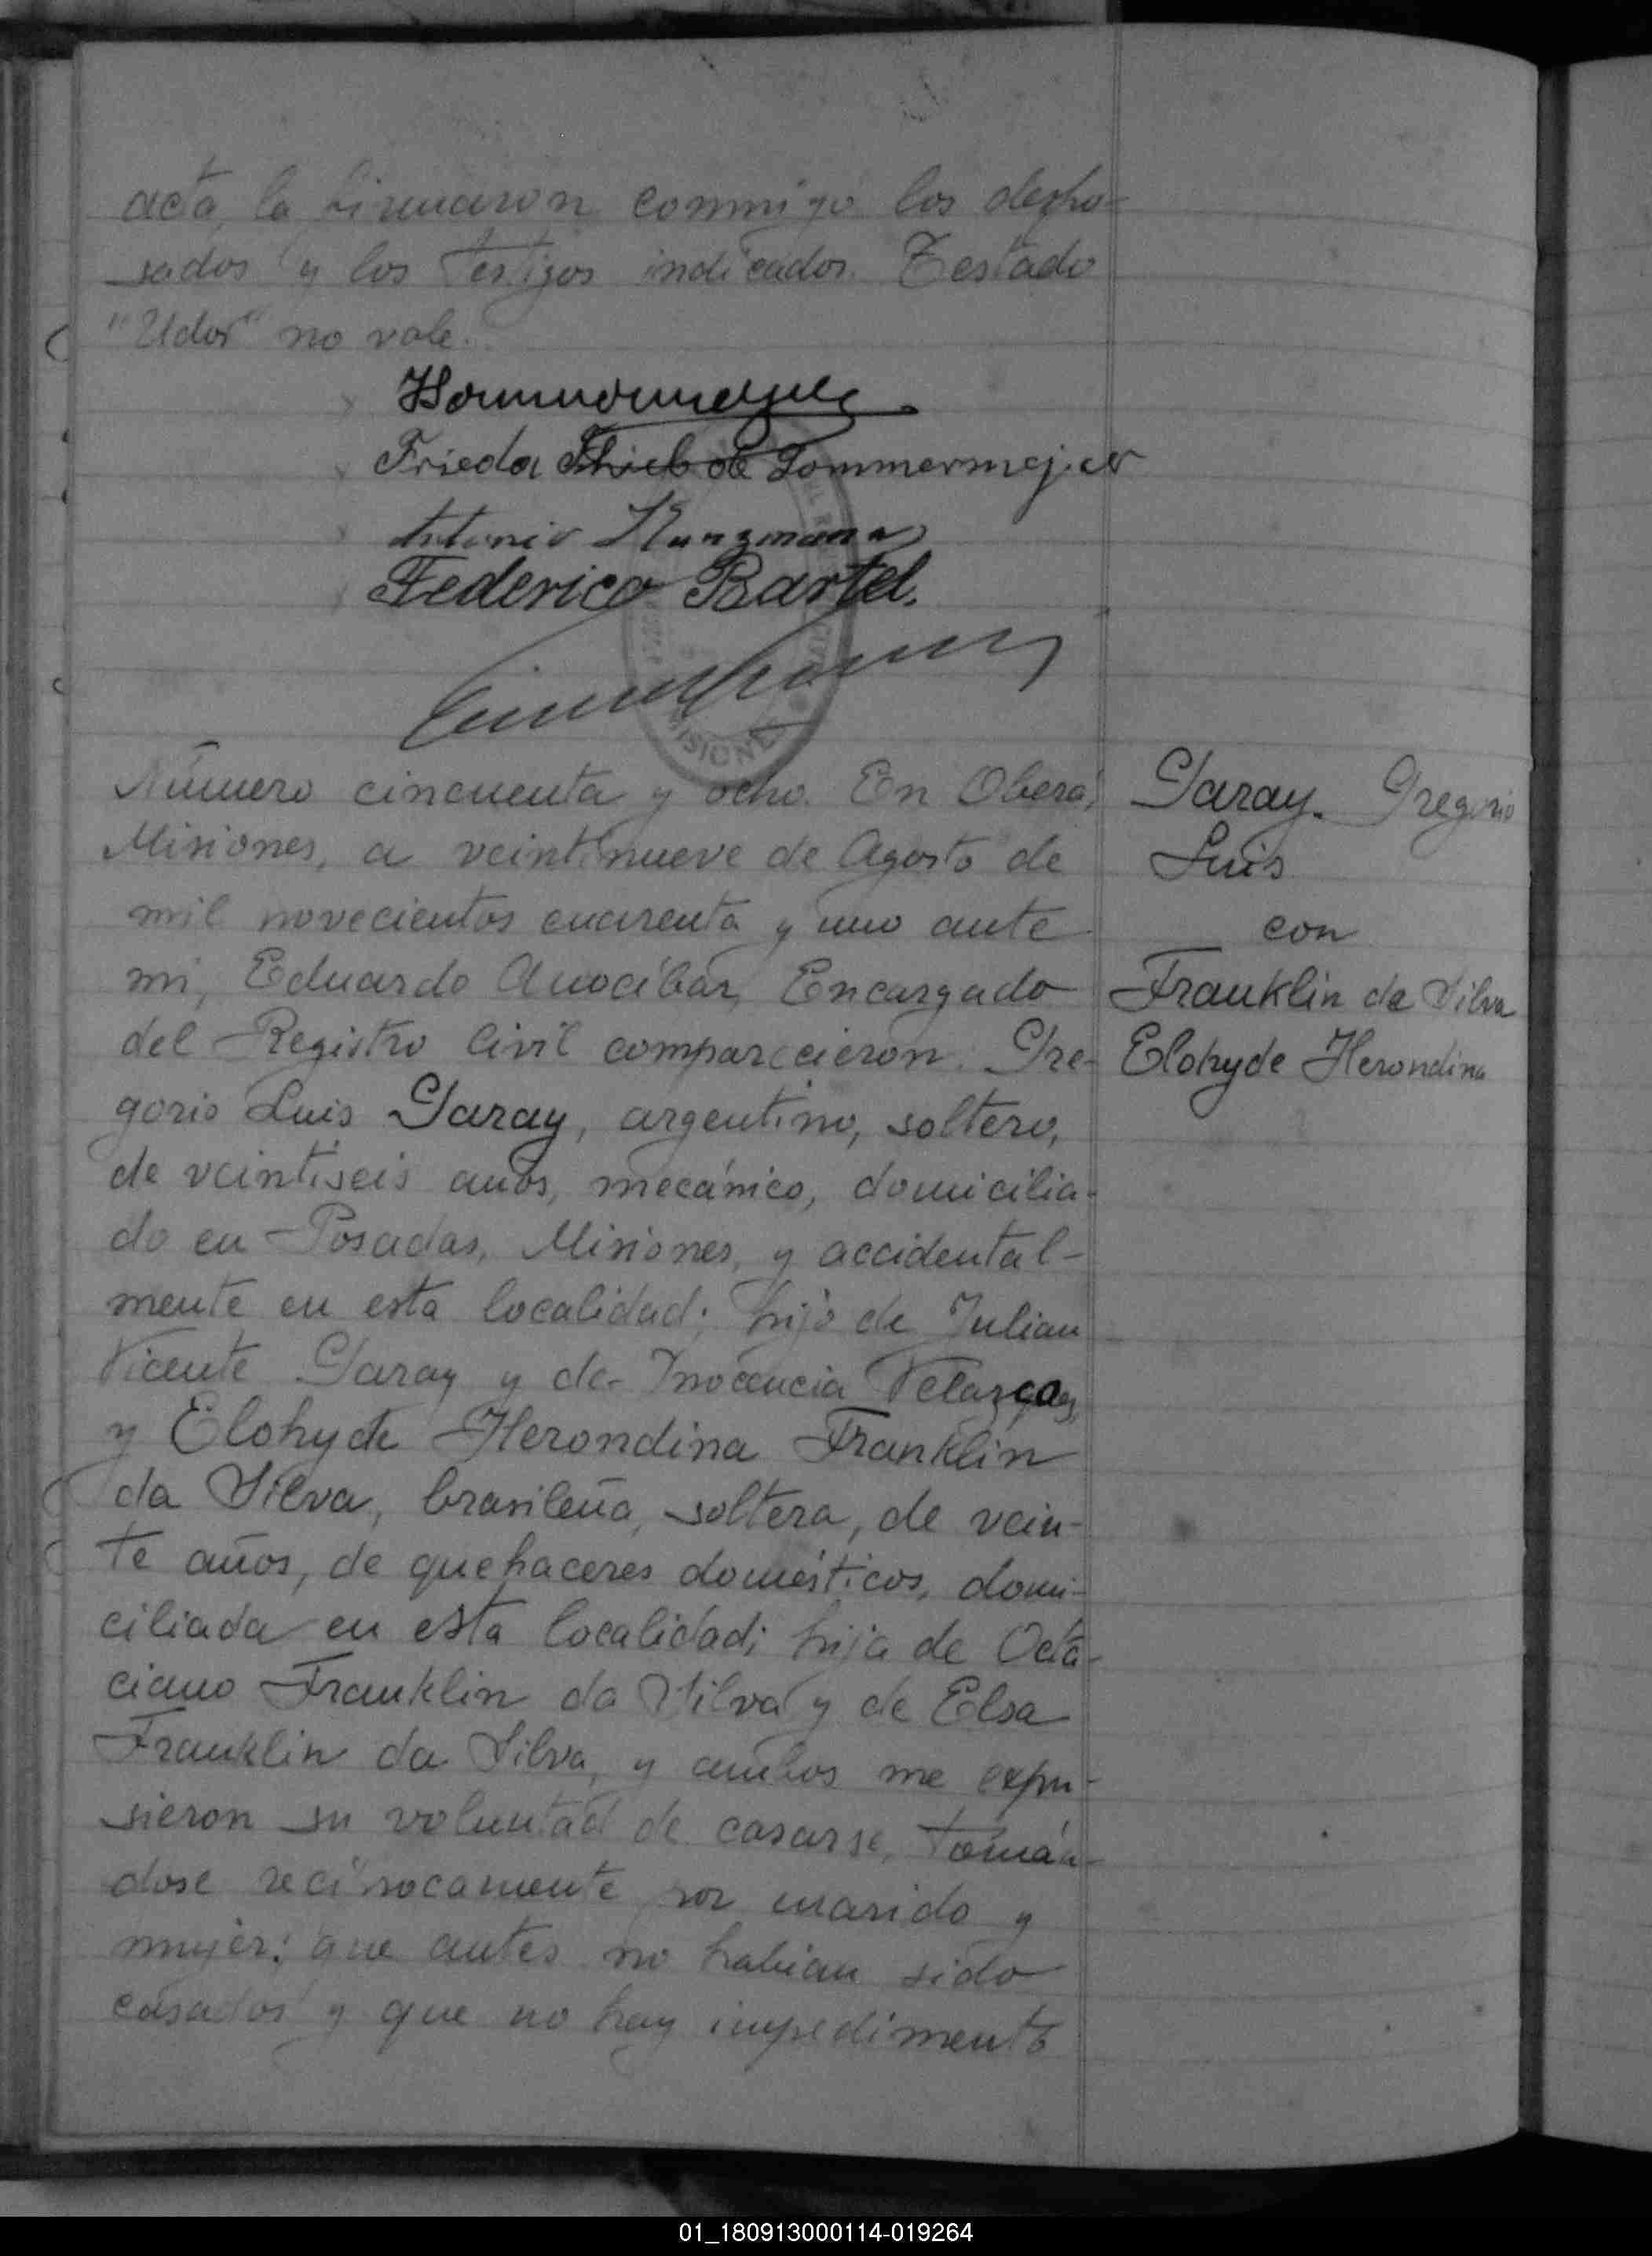 acta, la firmaron conmigo los despo-
sados y los testigos indicados. Testado
"Udos" no vale.
Frieda Thieb de Sommermejer
Antonio Kunzmann
Federico Bartel.
MISIONES
Número cincuenta y ocho. En Oberá,
Misiones, a veintinueve de Agosto de
mil novecientos cuarenta y uno ante
mi, Eduardo Anocíbar, Encargado
del Registro Civil comparecieron: Gre-
gorio Luis Garay, argentino, soltero,
de veintiseis años, mecánico, domicilia-
do en Posadas, Misiones, y accidental-
mente en esta localidad; hijo de Julian
Vicente Garay y de Inocencia
y Elohyde Herondina Franklin
da Silva, brasileña, soltera, de vein-
te años, de quehaceres domésticos, domi-
ciliada en esta localidad; hija de Octa-
ciano Franklin da Silva y de Elsa
Franklin da Silva, y ambos me expu-
sieron su voluntad de casarse, tomán-
dose recíprocamente por marido y
mujer; que antes no habian sido
casados y que no hay impedimento
Garay. Gregorio
Luis
con
Franklin da Silva
Elohyde Herondina
01_180913000114-019264